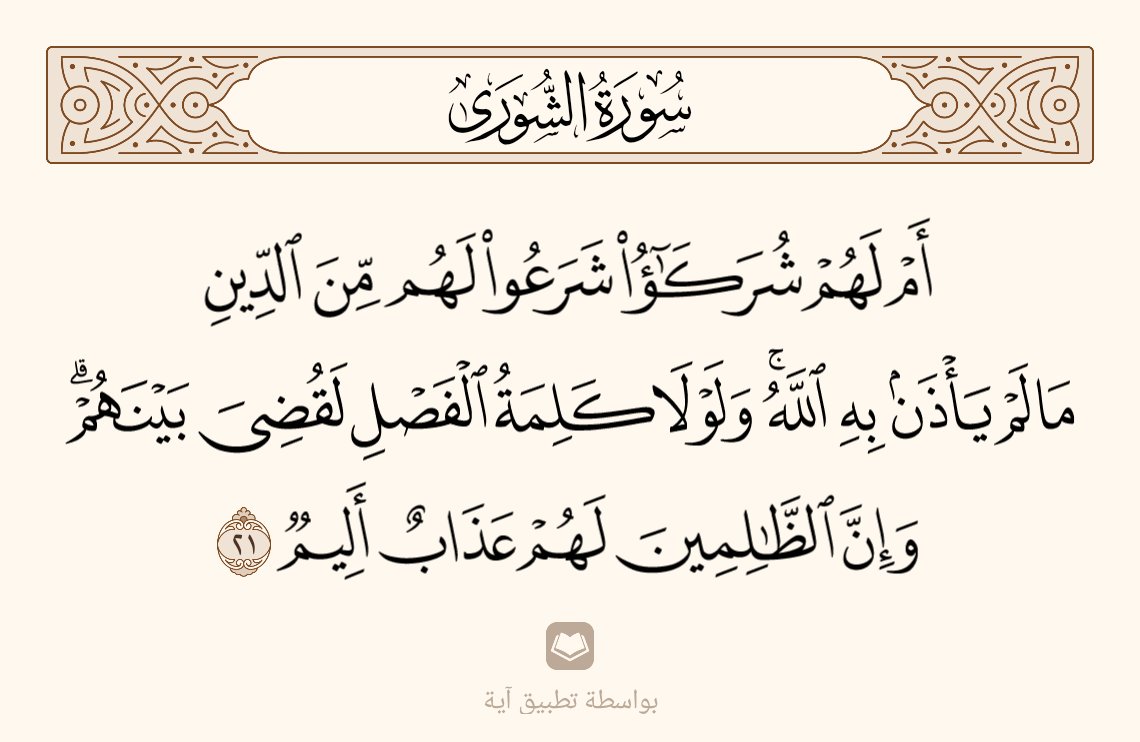 سُورَةُ الشُّورَىٰ
أَمْ لَهُمْ شُرَكَـٰٓؤُا۟ شَرَعُوا۟ لَهُم مِّنَ ٱلدِّينِ
مَا لَمْ يَأْذَنۢ بِهِ ٱللَّهُ ۚ وَلَوْلَا كَلِمَةُ ٱلْفَصْلِ لَقُضِىَ بَيْنَهُمْ ۗ
وَإِنَّ ٱلظَّـٰلِمِينَ لَهُمْ عَذَابٌ أَلِيمٌ ٢١
بواسطة تطبيق آية